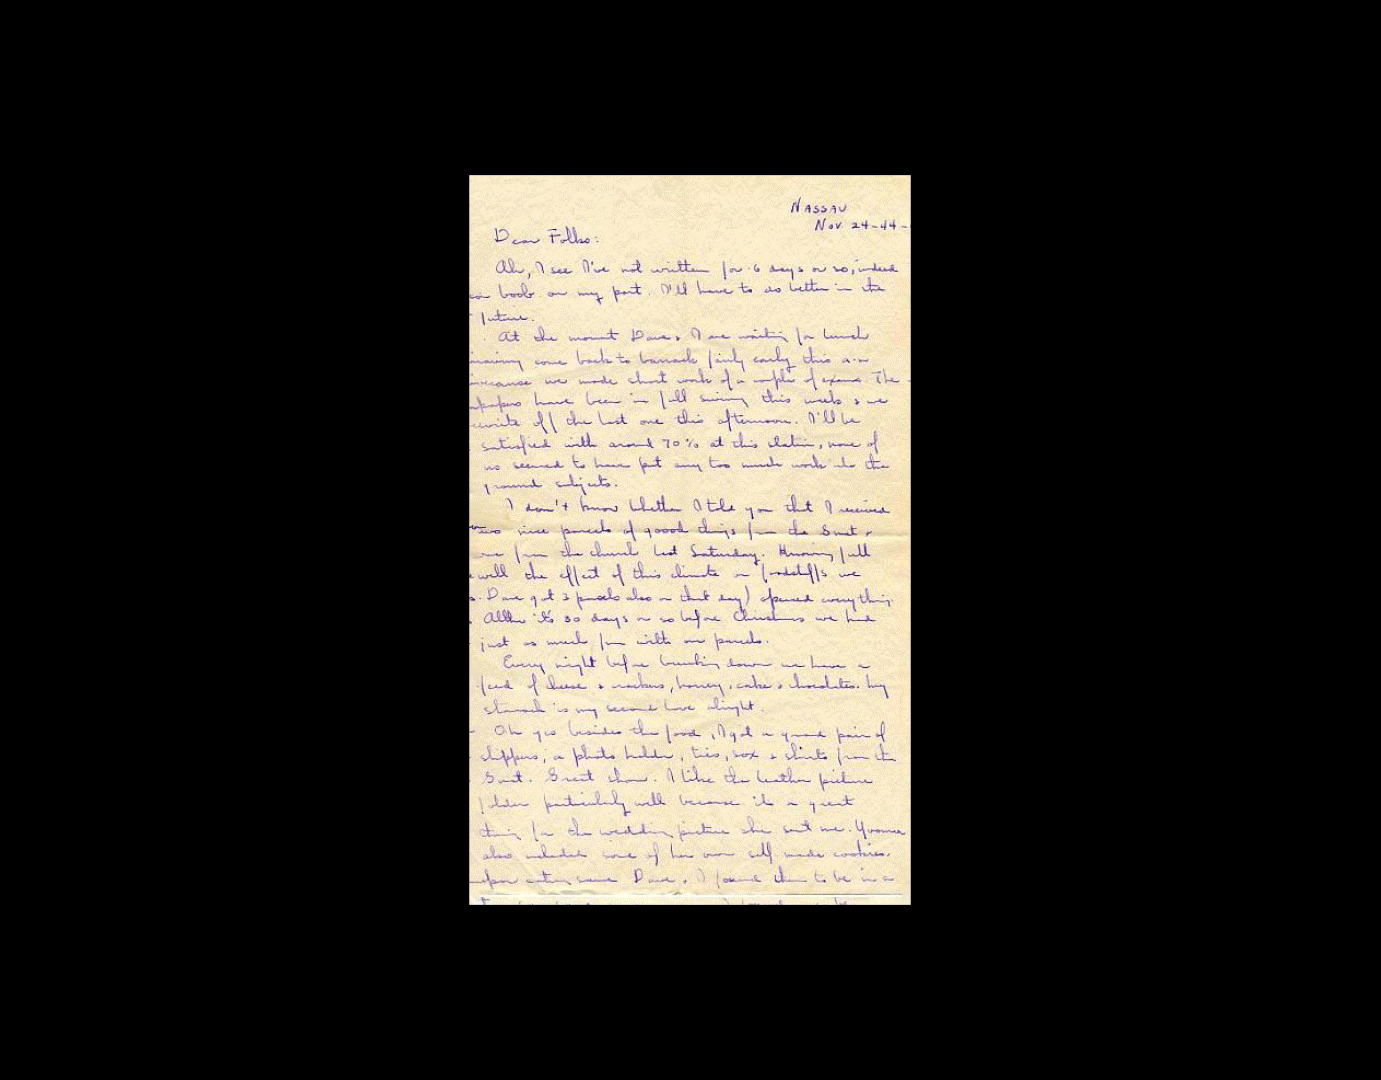 NASSAU
Nov. 24-44-
Dear Folks:
Ah, I see I've not written for 6 days or so, indeed
boob on my part. I'll have to do better in the
future.
At the moment Dave & I are waiting for lunch
having come back to barrack fairly early this a.m
because we made short work of a couple of exams. The
papers have been in full swing this week & we
write off the last one this afternoon. I'll be
satisfied with around 70% at this station, none of
us seemed to have put any too much work into the
ground subjects.
I don't know whether I told you that I received
two nice parcels of goood things from the Smet &
one from the church last Saturday. Knowing full
well the effect of this climate on foodstuffs we
Dave got 3 parcels also on that day) opened everything.
Altho it's 30 days or so before Christmas we had
just as much fun with our parcels.
Every night before bunking down we have a
feed of cheese & crackers, honey, cake & chocolates. My
stomach is my second love alright.
Oh yes besides the food, I got a grand pair of
slippers, a photo holder, ties, sox & shirts from the
Smet. Great show. I like the leather picture
folder particularly well because it's a great
thing for the wedding picture she sent me. Yvonne
also included some of her own self made cookies.
upon eating same Dave & I found them to be in a